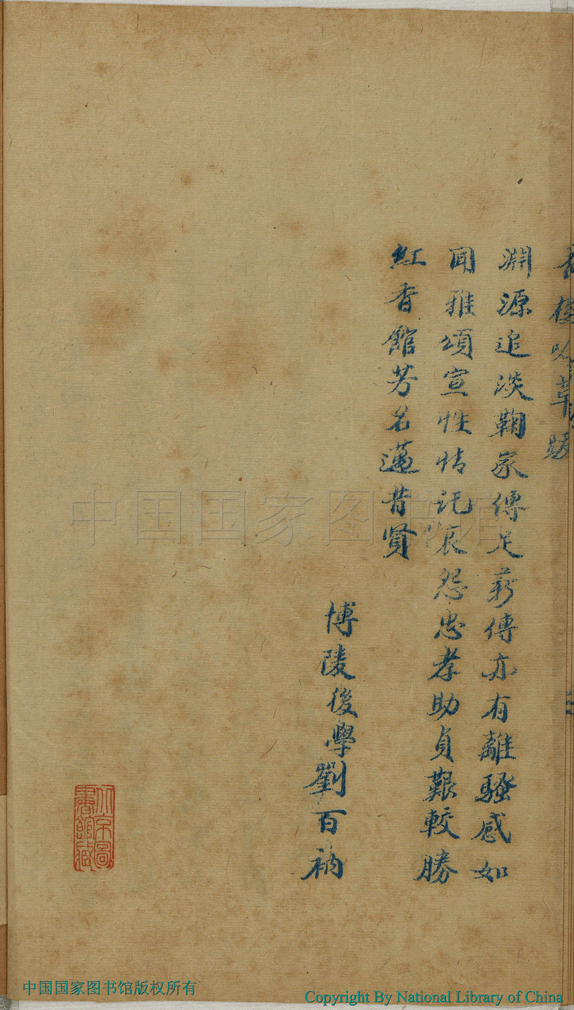 香樓吟草跋
淵源追淡鞠家傳足薪傳亦有離騷感如
聞雅頌宣性情託哀怨忠孝助貞艱較勝
紅香館芳名邁昔賢
博陵後學劉百衲
北京圖書館藏
中国国家图书馆
中国国家图书馆版权所有
Copyright By National Library of China